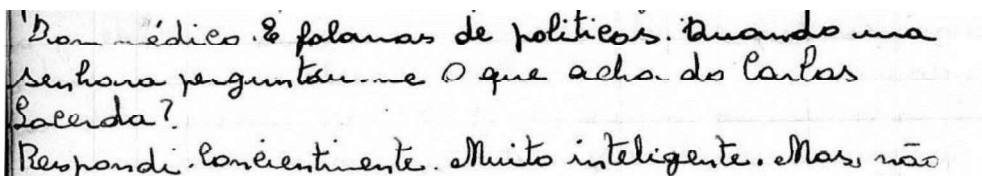 Bom médico. E falamos de politicos. Quando uma
senhora perguntou-me O que acha do Carlos
Lacerda?
Respondi. Concientimente. Muito inteligente. Mas, não